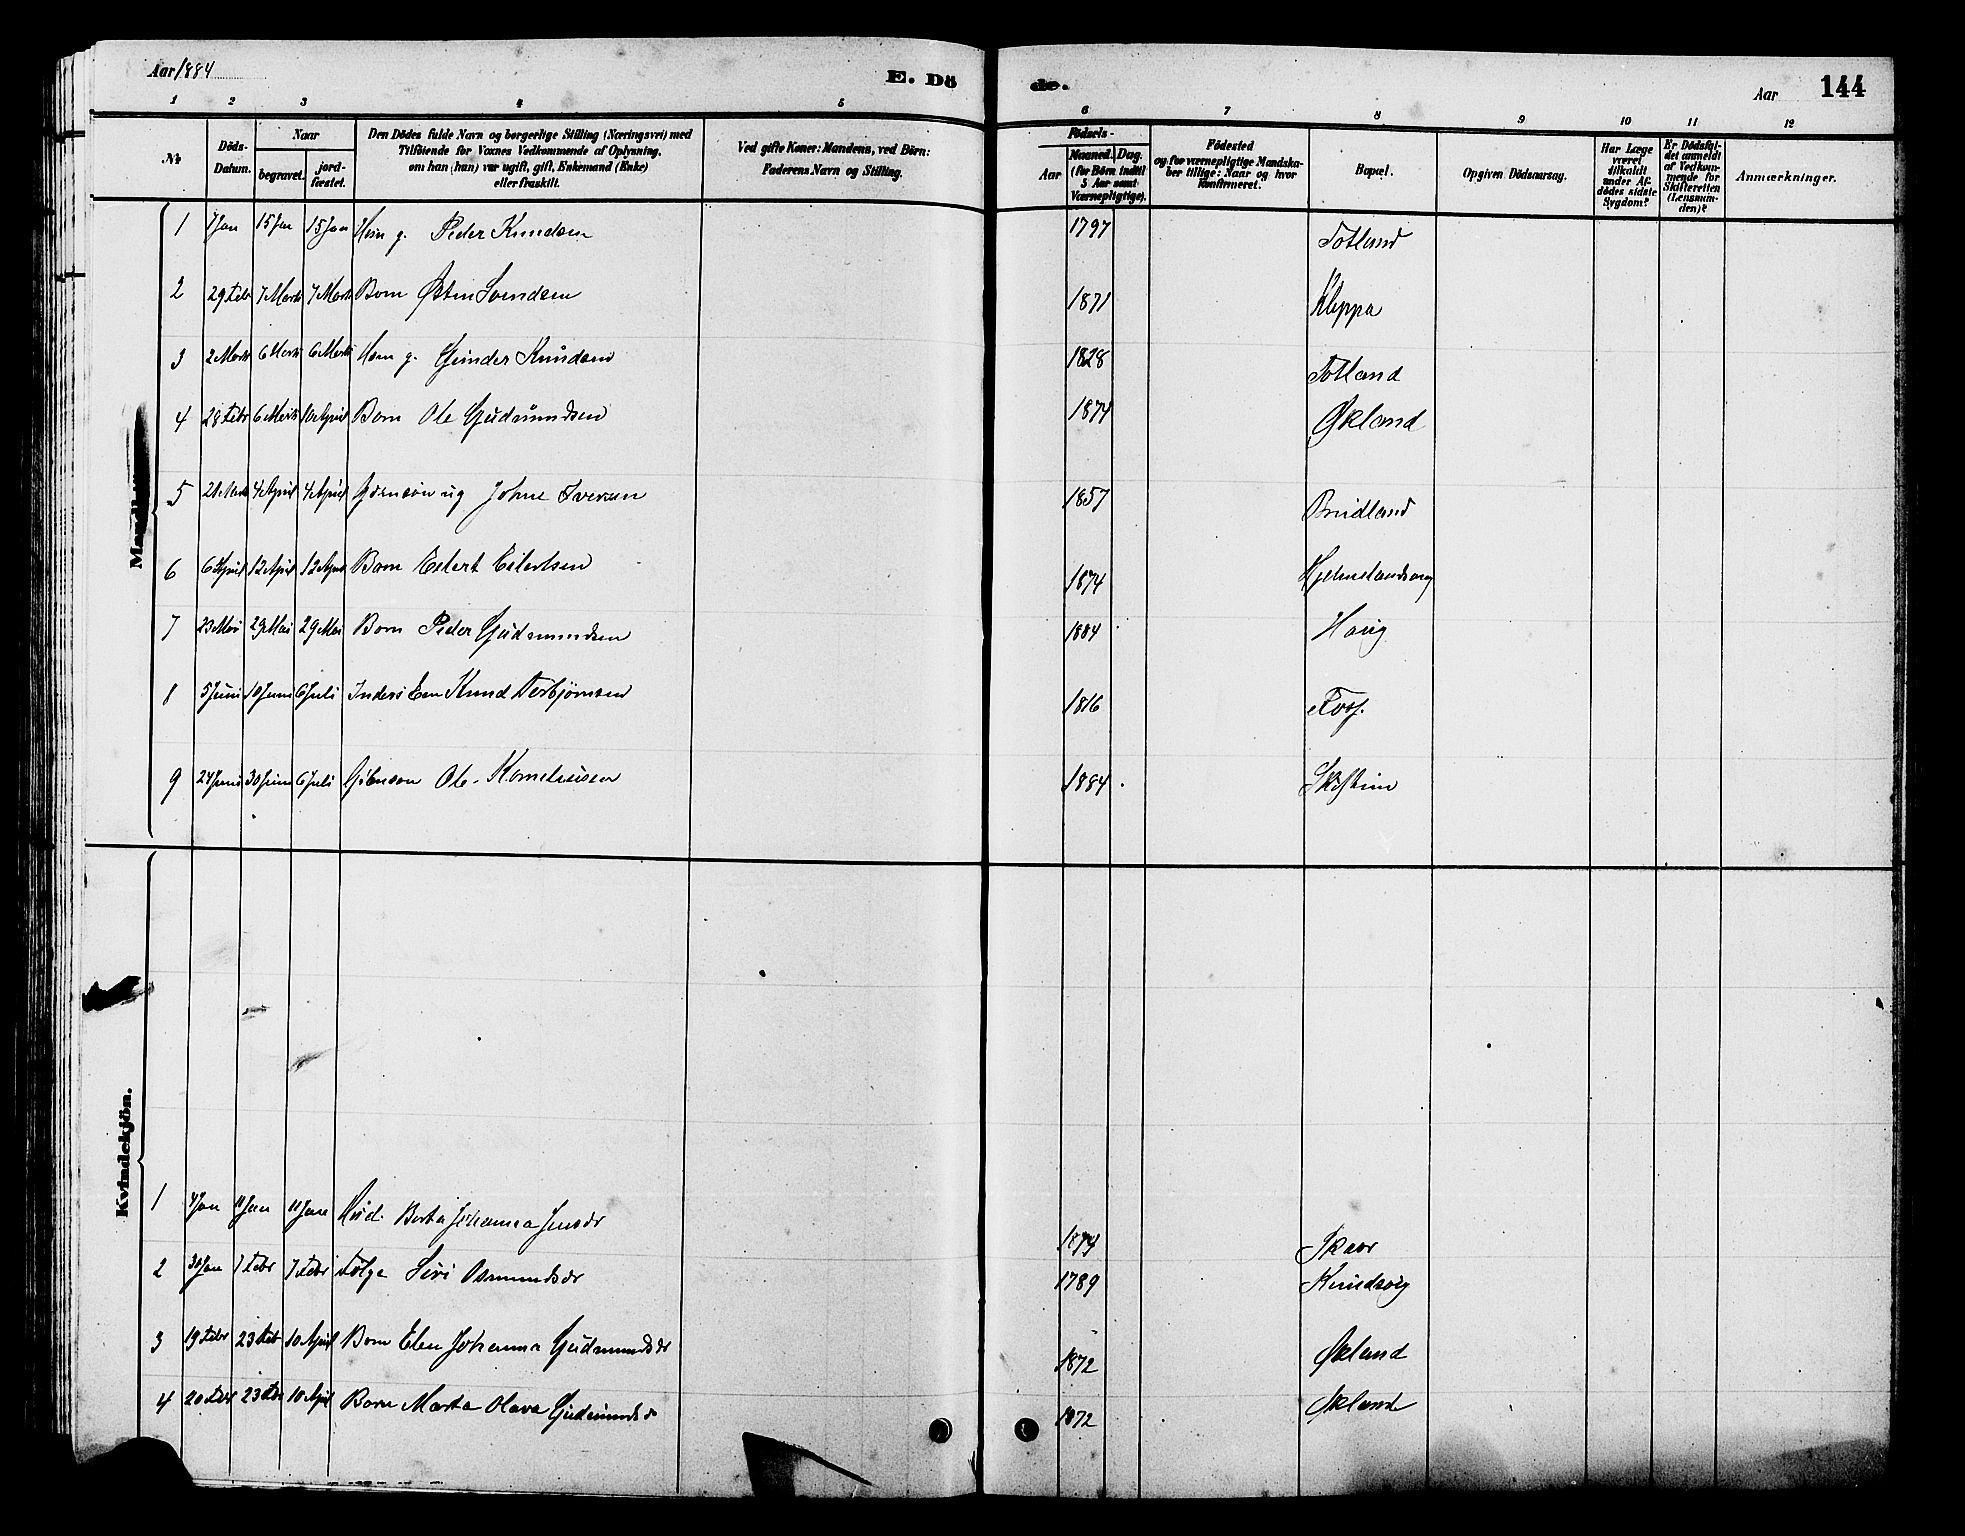 Aar 1884 E. Dö de. Aar 144
1 2 3 4 5 6 7 8 9 10 11 12
No Döds-Datum. Naar begravet. jordfæstet. Den Dödes fulde Navn og borgerlige Stilling (Næringsvei) med Tilföiende for Voxnes Vedkommende af Oplysning, om han (hun) var ugift, gift, Enkemand (Enke) eller fraskilt. Ved gifte Koner: Mandens, ved Börn: Faderens Navn og Stilling. Födsels- Aar Maaned. Dag. (for Börn indtil 5 Aar samt Værnepligtige). Födested og for værnepligtige Mandskaber tillige: Naar og hvor Konfirmeret. Bopæl. Opgiven Dödsaarsag. Har Læge været tilkaldt under Afdödes sidste Sygdom? Er Dödsfaldet anmeldt af Vedkommende for Skifteretten (Lensmanden)? Anmærkninger.
1 7 Jan 15 Jan 15 Jan g. Peder Knudsen 1797 Totland
2 29 Febr 7 Marts 7 Marts Barn Østen Svendsen 1871 Kleppa
3 2 Marts 6 Marts 6 Marts g. Knudsen 1828 Totland
4 28 Febr 6 Marts 10 April Barn Ole Gudmundsen 1874 Økland
5 Marts 4 April 4 April ug Johne Iversen 1857
6 6 April 12 April 12 April Barn Eilert Eilertsen 1874
7 23 Mai 29 Mai 29 Mai Barn Peder Gudmundsen 1884 Haug
8 5 Juni 10 Juni 6 Juli Knud Torbjørnsen 1816
9 24 Juni 30 Juni 6 Juli Ole Korneliussen 1884
Kvindekjön.
1 4 Jan 11 Jan 11 Jan Berta Johanna 1874 Skaar
2 30 Jan 7 Febr 7 Febr Siri Osmundsdr 1789
3 19 Febr 23 Feb 10 April Barn Elen Johanna Gudmundsdr 1872 Økland
4 20 Febr 23 Feb 10 April Barn Marta Olava Gudmundsdr 1872 Økland